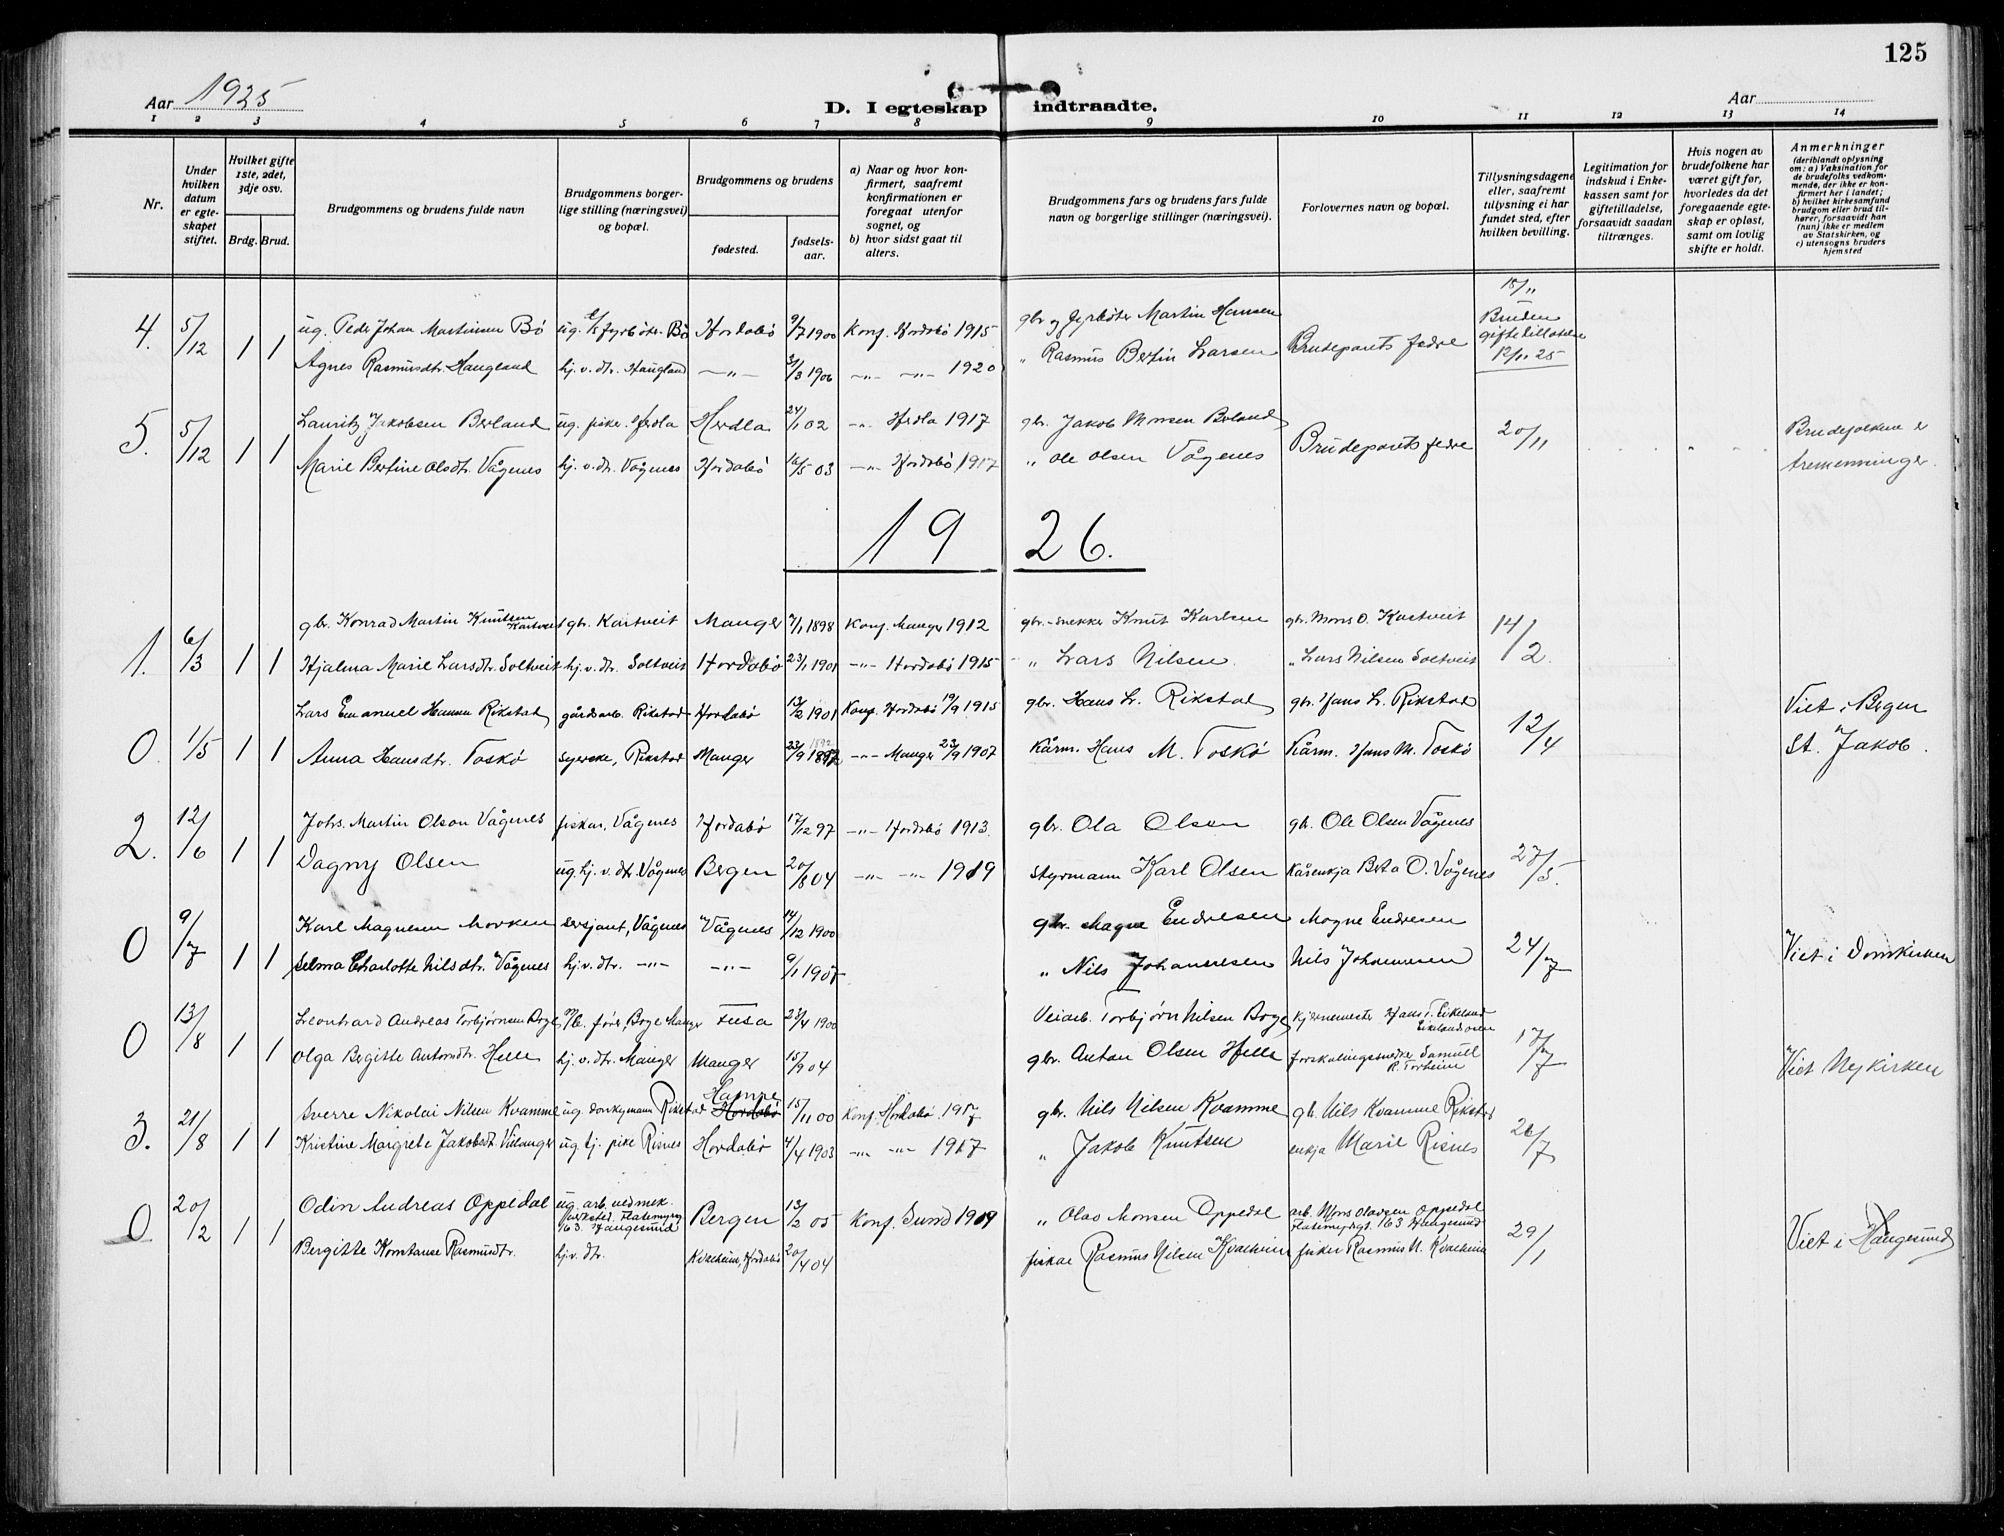 125
Aar 1925
D. I egteskap indtraadte.
Aar
1 2 3 4 5 6 7 8 9 10 11 12 13 14
Nr.
Under hvilken datum er egteskapet stiftet.
Hvilket gifte 1ste, 2det, 3dje osv.
Brdg. Brud.
Brudgommens og brudens fulde navn
Brudgommens borgerlige stilling (næringsvei) og bopæl.
Brudgommens og brudens
fødested.
fødselsaar.
a) Naar og hvor konfirmert, saafremt konfirmationen er foregaat utenfor sognet, og
b) hvor sidst gaat til alters.
Brudgommens fars og brudens fars fulde navn og borgerlige stillinger (næringsvei).
Forlovernes navn og bopæl.
Tillysningsdagene eller, saafremt tillysning ei har fundet sted, efter hvilken bevilling.
Legitimation for indskud i Enkekassen samt for giftetilladelse, forsaavidt saadan tiltrænges.
Hvis nogen av brudefolkene har været gift før, hvorledes da det foregaaende egteskap er opløst, samt om lovlig skifte er holdt.
Anmerkninger
(deriblandt oplysning om: a) Vaksination for de brudefolks vedkommende, der ikke er konfirmert her i landet; b) hvilket kirkesamfund brudgom eller brud tilhører, forsaavidt han (hun) ikke er medlem av Statskirken, og c) utensogns bruders hjemsted
4. 5/12 1 1 ug. Peder Johan Martinsen Bø ug. fyrbøter Bø Hordabø 9/7 1900 Konf. Hordabø 1915 gbr og fyrbøter Martin Hansen Brudeparets fedre 15/11 Bruden giftetillatelse 12/11 25
Agnes Rasmusdtr. Haugland hj. v. dtr. Haugland —„— 3/3 1906 —„— —„— 1920 „ Rasmus Bertin Larsen
5. 5/12 1 1 Lauritz Jakobsen Berland ug. fisker Herdla Herdla 24/1 02 —„— Herdla 1917 gbr. Jakob Monsen Berland Brudeparets fedre 20/11 Brudefolkene er tremenninger.
Marie Bertine Olsdtr. Vågenes hj. v. dtr. Vågenes Hordabø 16/5 03 —„— Hordabø 1917 „ Ole Olsen Vågenes
1926.
1. 6/3 1 1 gbr. Konrad Martin Knutsen Kartveit gbr. Kartveit Manger 7/1 1898 Konf. Manger 1912 gbr.-snekker Knut Karlsen gbr. Mons O. Kartveit 14/2
Hjalma Marie Larsdtr. Soltveit hj. v. dtr. Soltveit Hordabø 23/1 1901 —„— Hordabø 1915 „ Lars Nilsen „ Lars Nilsen Soltveit
0. 1/5 1 1 Lars Emanuel Hansen Rikstad gårdsarb. Rikstad Hordabø 13/2 1901 Konf. Hordabø 19/9 1915 gbr. Hans L. Rikstad gbr. Hans L. Rikstad 12/4 Viet i Bergen St. Jakob.
Anna Hansdtr. Toskø syerske, Rikstad Manger 23/9 1892 —„— Manger 23/9 1907 Kårm. Hans M. Toskø Kårm. Hans M. Toskø
2. 12/6 1 1 Johs. Martin Olson Vågenes fiskar, Vågenes Hordabø 17/12 97 —„— Hordabø 1913. gbr. Ola Olsen gb. Ole Olsen Vågenes 27/5.
Dagny Olsen ug. hj. v. dtr. Vågenes Bergen 20/8 04 —„— —„— 1919 Styrmann Karl Olsen Kårenkja Berta O. Vågenes
0 9/7 1 1 Karl Magnesen Morken sersjant, Vågenes Vågnes 14/12 1900 gbr. Magne Endresen Mogne Endresen 24/7 Viet i Domkirken
Selma Charlotte Nilsdtr. Vågenes hj. v. dtr. —„— —„— 9/1 1907 „ Nils Johannesen Nils Johannesen
0 13/8 1 1 Leonhard Andreas Torbjørnsen Boge m/b. fører, Boge Manger Fusa 23/4 1900 Veiarb. Torbjørn Nilsen Boge Hans T. Eikeland Eikelandsosen 17/7 Viet Nykirken
Olga Bergitte Antondtr. Helle hj. v. dtr. Manger Manger 15/9 04 gbr. Anton Olsen Helle forskalingssnekker Samuel R. Torheim
3. 21/8 1 1 Sverre Nikolai Nilsen Kvamme ug. donkymann Rikstad Hamre Hordabø 15/11 00 Konf. Hordabø 1917 gbr. Nils Nilsen Kvamme gb. Nils Kvamme Rikstad 26/7
Kristine Margrete Jakobsdt. Valanger ug. tj. pike Risnes Hordabø 4/4 1903 —„— —„— 1917 „ Jakob Knutsen enkja Marie Risnes
0 20/2 1 1 Odin Andreas Oppedal ug. arb. ved mek. verksted. Flatemyrg 163. Haugesund Bergen 13/2 05 Konf. Sund 1919 „ Olav Monsen Oppedal arb. Mons Olavsen Oppedal Flatemyrgt. 163 Haugesund 29/1 Viet i Haugesund
Bergitte Konstanse Rasmusdtr. hj. v. dtr. Kvalheim, Hordabø 20/4 04 fiskar Rasmus Nilsen Kvalheim fisker Rasmus N. Kvalheim